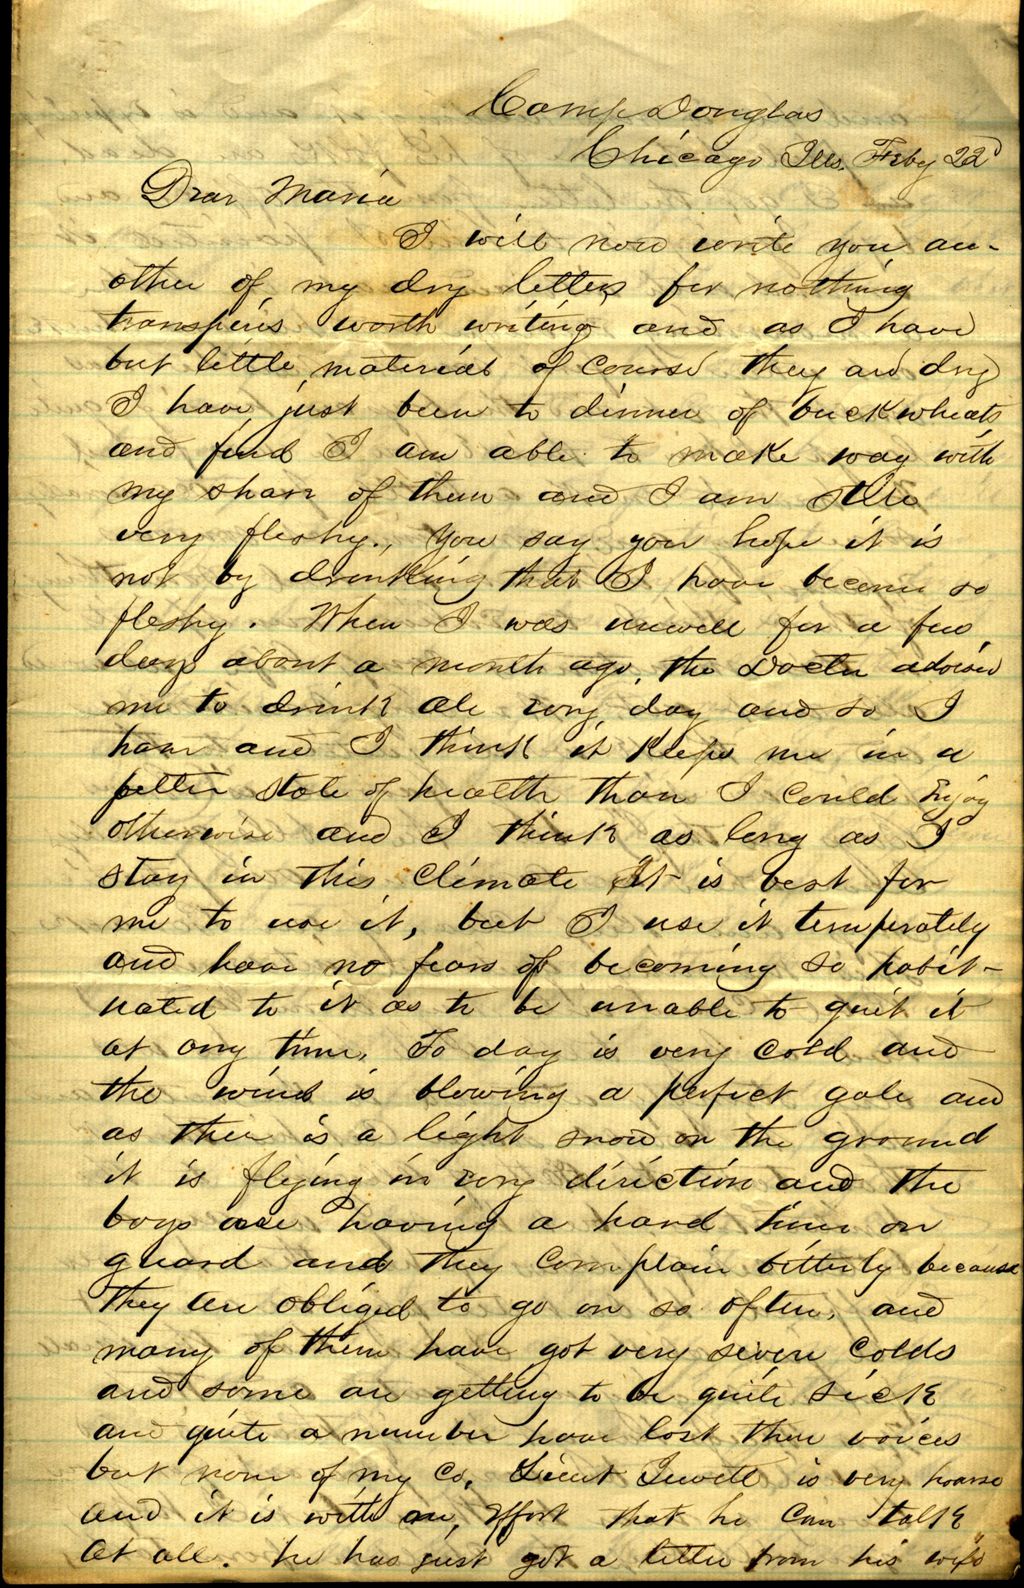 Camp Douglas
Chicago Ills. Feby 22d
Dear Maria
I will now write you an-
other of my dry letters for nothing
transpires worth writing and as I have
but little material of course they are dry
I have just been to dinner of buckwheats
and find I am able to make way with
my share of them and I am still
very fleshy., You say you hope it is
not by drinking that I have become so
fleshy. When I was unwell for a few
days about a month ago, the Doctor advised
me to drink Ale evry day and so I
have and I think it keeps me in a
better state of health than I could Enjoy
otherwise and I think as long as I
stay in this climate It is best for
me to use it, but I use it temperately
and have no fears of becoming so habit-
uated to it as to be unable to quit it
at any time. To day is very cold and
the wind is blowing a perfect gale and
as there is a light snow on the ground
it is flying in evry direction and the
boys are having a hard time on
guard and they complain bitterly because
they are obliged to go on so often, and
many of them have got very severe colds
and some are getting to be quite sick
and quite a number have lost their voices
but none of my Co. Lieut Jewett is very hoarse
and it is with an, Effort that he can talk
at all. he has just got a letter from his wife